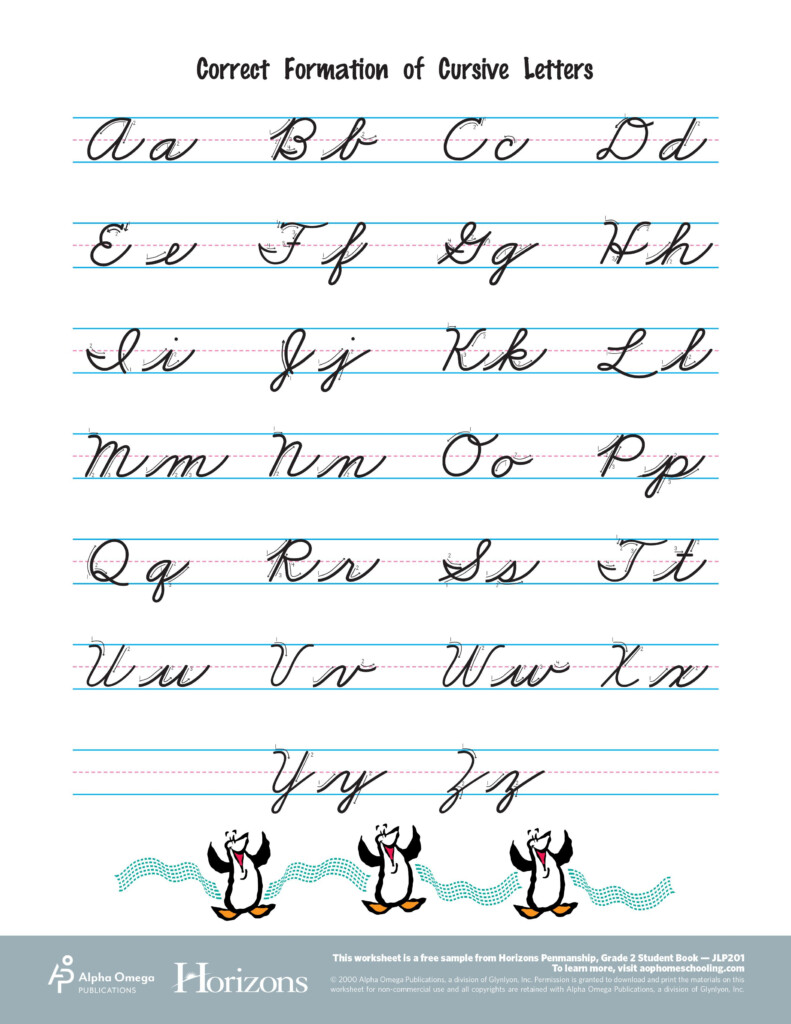 Correct Formation of Cursive Letters
Aa Bb Cc Dd
Ee Ff Gg Hh
Ii Jj Kk Ll
Mm Nn Oo Pp
Qq Rr Ss Tt
Uu Vv Ww Xx
Yy Zz
This worksheet is a free sample from Horizons Penmanship, Grade 2 Student Book — JLP201
To learn more, visit aophomeschooling.com
Alpha Omega
PUBLICATIONS
HORIZONS
© 2000 Alpha Omega Publications, a division of Glynlyon, Inc. Permission is granted to download and print the materials on this
worksheet for non-commercial use and all copyrights are retained with Alpha Omega Publications, a division of Glynlyon, Inc.